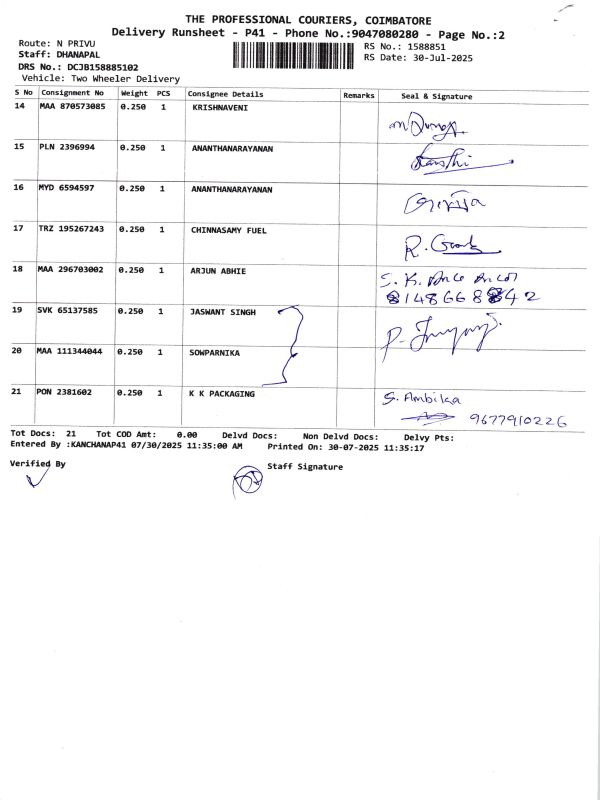 THE PROFESSIONAL COURIERS, COIMBATORE
Delivery Runsheet - P41 - Phone No.:9047080280 - Page No.:2
Route: N PRIVU
RS No.: 1588851
Staff: DHANAPAL
RS Date: 30-Jul-2025
DRS No.: DCJB158885102
Vehicle: Two Wheeler Delivery
S No Consignment No Weight PCS Consignee Details Remarks Seal & Signature
14 MAA 870573085 0.250 1 KRISHNAVENI
15 PLN 2396994 0.250 1 ANANTHANARAYANAN
16 MYD 6594597 0.250 1 ANANTHANARAYANAN
17 TRZ 195267243 0.250 1 CHINNASAMY FUEL
18 MAA 296703002 0.250 1 ARJUN ABHIE S. K.
8148668842
19 SVK 65137585 0.250 1 JASWANT SINGH
20 MAA 111344044 0.250 1 SOWPARNIKA
21 PON 2381602 0.250 1 K K PACKAGING S. Ambika
9677910226
Tot Docs: 21 Tot COD Amt: 0.00 Delvd Docs: Non Delvd Docs: Delvy Pts:
Entered By :KANCHANAP41 07/30/2025 11:35:00 AM Printed On: 30-07-2025 11:35:17
Verified By
Staff Signature